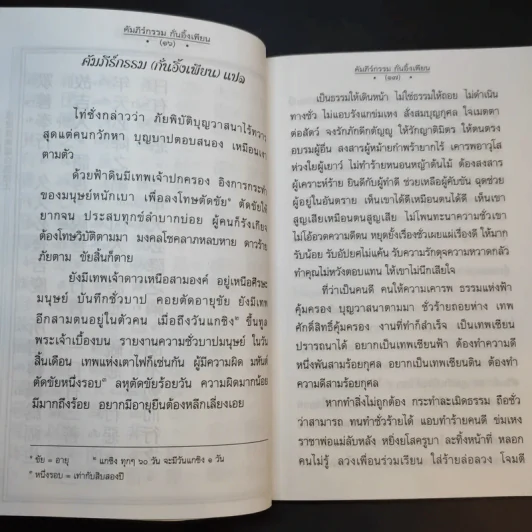 คัมภีร์กรรม กันอิ้งเพียน
• (๑๖) •
คัมภีร์กรรม (กันอิ้งเพียน) แปล
ไท่ซั่งกล่าวว่า ภัยพิบัติบุญวาสนาไร้ทวาร
สุดแต่คนกวักหา บุญบาปตอบสนอง เหมือนเงา
ตามตัว
ด้วยฟ้าดินมีเทพเจ้าปกครอง อิงการกระทำ
ของมนุษย์หนักเบา เพื่อลงโทษตัดขัย ตัดขัยให้
ยากจน ประสบทุกข์ลำบากบ่อย ผู้คนก็รังเกียจ
ต้องโทษวิบัติตามมา มงคลโชคลาภหลบหาย ดาวร้าย
ภัยตาม ขัยสิ้นก็ตาย
ยังมีเทพเจ้าดาวเหนือสามองค์ อยู่เหนือศีรษะ
มนุษย์ บันทึกชั่วบาป คอยตัดอายุขัย ยังมีเทพ
อีกสามตนอยู่ในตัวคน เมื่อถึงวันแกซิง ขึ้นทูล
พระเจ้าเบื้องบน รายงานความชั่วบาปมนุษย์ ในวัน
สิ้นเดือน เทพแห่งเตาไฟก็เช่นกัน ผู้มีความผิด มหันต์
ตัดขัยหนึ่งรอบ ลหุตัดขัยร้อยวัน ความผิดมากน้อย
มีมากถึงร้อย อยากมีอายุยืนต้องหลีกเลี่ยงเอย
ขัย = อายุ แกซิง ทุกๆ ๖๐ วัน จะมีวันแกซิง ๑ วัน
หนึ่งรอบ = เท่ากับสิบสองปี
คัมภีร์กรรม กันอิ้งเพียน
• (๑๗) •
เป็นธรรมให้เดินหน้า ไม่ใช่ธรรมให้ถอย ไม่ดำเนิน
ทางชั่ว ไม่แอบรังแกข่มเหง สั่งสมบุญกุศล ใจเมตตา
ต่อสัตว์ จงรักภักดีกตัญญู ให้รักญาติมิตร ให้ตนตรง
อบรมผู้อื่น สงสารผู้หม้ายกำพร้ายากไร้ เคารพอาวุโส
ห่วงใยผู้เยาว์ ไม่ทำร้ายหนอนหญ้าต้นไม้ ต้องสงสาร
ผู้เคราะห์ร้าย ยินดีกับผู้ทำดี ช่วยเหลือผู้คับขัน ฉุดช่วย
ผู้อยู่ในอันตราย เห็นเขาได้ดีเหมือนตนได้ดี เห็นเขา
สูญเสียเหมือนตนสูญเสีย ไม่โพนทะนาความชั่วเขา
ไม่โอ้อวดความดีตน หยุดยั้งเรื่องชั่วเผยแผ่เรื่องดี ให้มาก
รับน้อย รับอัปยศไม่แค้น รับความรักดุจความหวาดกลัว
ทำคุณไม่หวังตอบแทน ให้เขาไม่นึกเสียใจ
ที่ว่าเป็นคนดี คนให้ความเคารพ ธรรมแห่งฟ้า
คุ้มครอง บุญวาสนาตามมา ชั่วร้ายถอยห่าง เทพ
ศักดิ์สิทธิ์คุ้มครอง งานที่ทำก็สำเร็จ เป็นเทพเซียน
ปรารถนาได้ อยากเป็นเทพเซียนฟ้า ต้องทำความดี
หนึ่งพันสามร้อยกุศล อยากเป็นเทพเซียนดิน ต้องทำ
ความดีสามร้อยกุศล
หากทำสิ่งไม่ถูกต้อง กระทำละเมิดธรรม ถือชั่ว
ว่าสามารถ ทนทำชั่วร้ายได้ แอบทำร้ายคนดี ข่มเหง
ราชาพ่อแม่ลับหลัง หยิ่งยโสครูบา ละทิ้งหน้าที่ หลอก
คนไม่รู้ ลวงเพื่อนร่วมเรียน ใส่ร้ายล่อลวง โจมตี